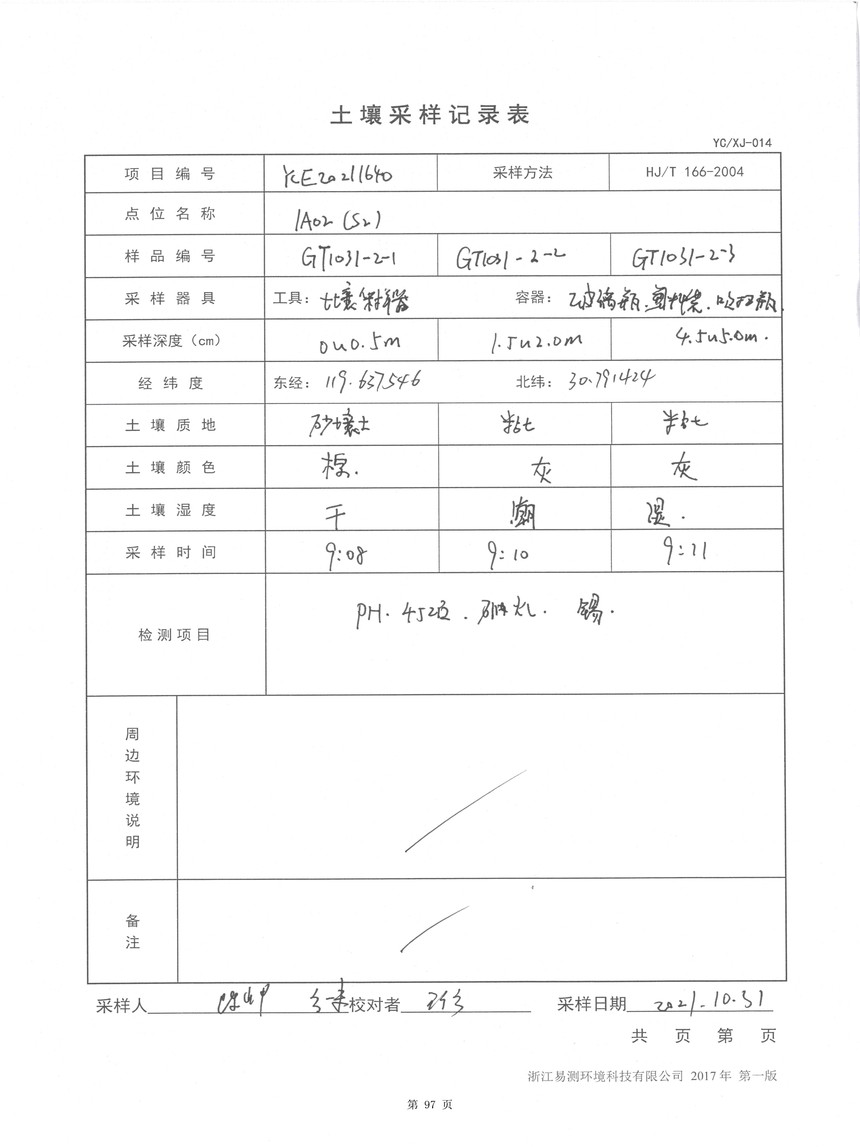 土壤采样记录表
YC/XJ-014
项目编号 YCE20211640 采样方法 HJ/T 166-2004
点位名称 1A02 (S2)
样品编号 GT1031-2-1 GT1031-2-2 GT1031-2-3
采样器具 工具: 土壤采样器 容器: 玻璃瓶.
采样深度(cm) 0~0.5m 1.5~2.0m 4.5~5.0m.
经纬度 东经: 119.637546 北纬: 30.791424
土壤质地 砂壤土
土壤颜色 棕. 灰 灰
土壤湿度 干 潮 湿.
采样时间 9:08 9:10 9:11
检测项目 PH. 45项. 石油烃. 锡.
周边环境说明
备注
采样人 校对者 采样日期 2021.10.31
共 页 第 页
浙江易测环境科技有限公司 2017年 第一版
第 97 页